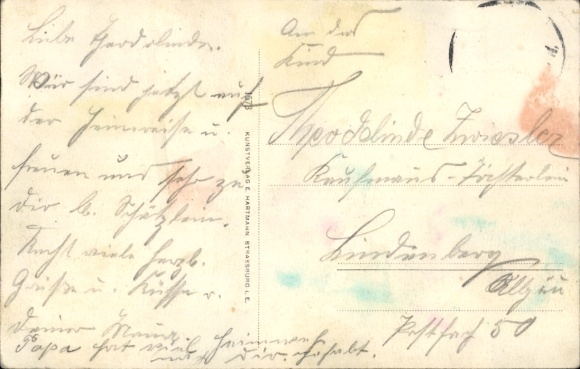 Liebe Theodolinde.
Wir sind jetzt auf
der Heimreise u.
freuen uns sehr zu
dir lb. Schätzlein.
Recht viele herzl.
Grüße u. Küsse v.
deiner Mama.
Papa hat viel Heimweh
nach Dir gehabt.
1678
KUNSTVERLAG E. HARTMANN STRASSBURG i. E.
An das
Kind
Theodelinde Zwiesler
Kaufmanns-Töchterlein
Lindenberg
Allgäu
Postfach 50